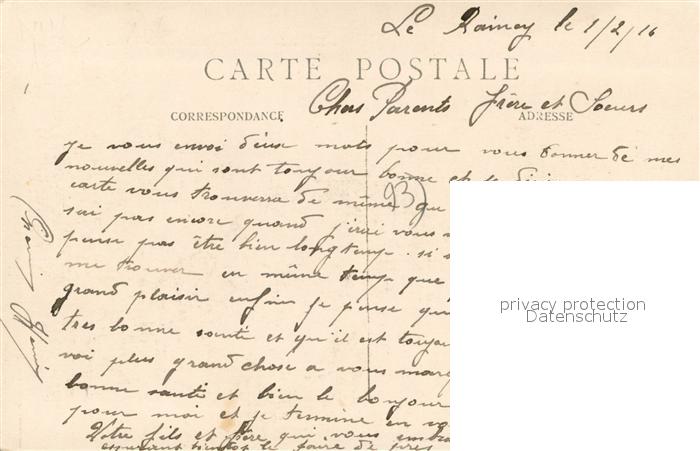 Le Raincy le 1/2/16
CARTE POSTALE
CORRESPONDANCE
ADRESSE
Chers Parents frère et Soeurs
je vous envoi deux mots pour vous donner de mes
nouvelles qui sont toujour bonne et je
carte vous trouverra de même que
93)
sai pas encore quand j'irai vous
pense pas être bien longtemp. si
me trouver en même temp que
grand plaisir enfin je pense que
tres bonne santé et qu'il est toujou
voi plus grand chose a vous marq
bonne santé et bien le bonjour
pour moi et je termine en vo
Votre fils et frère qui vous embra
esperant bientot le faire de pres
privacy protection
Datenschutz